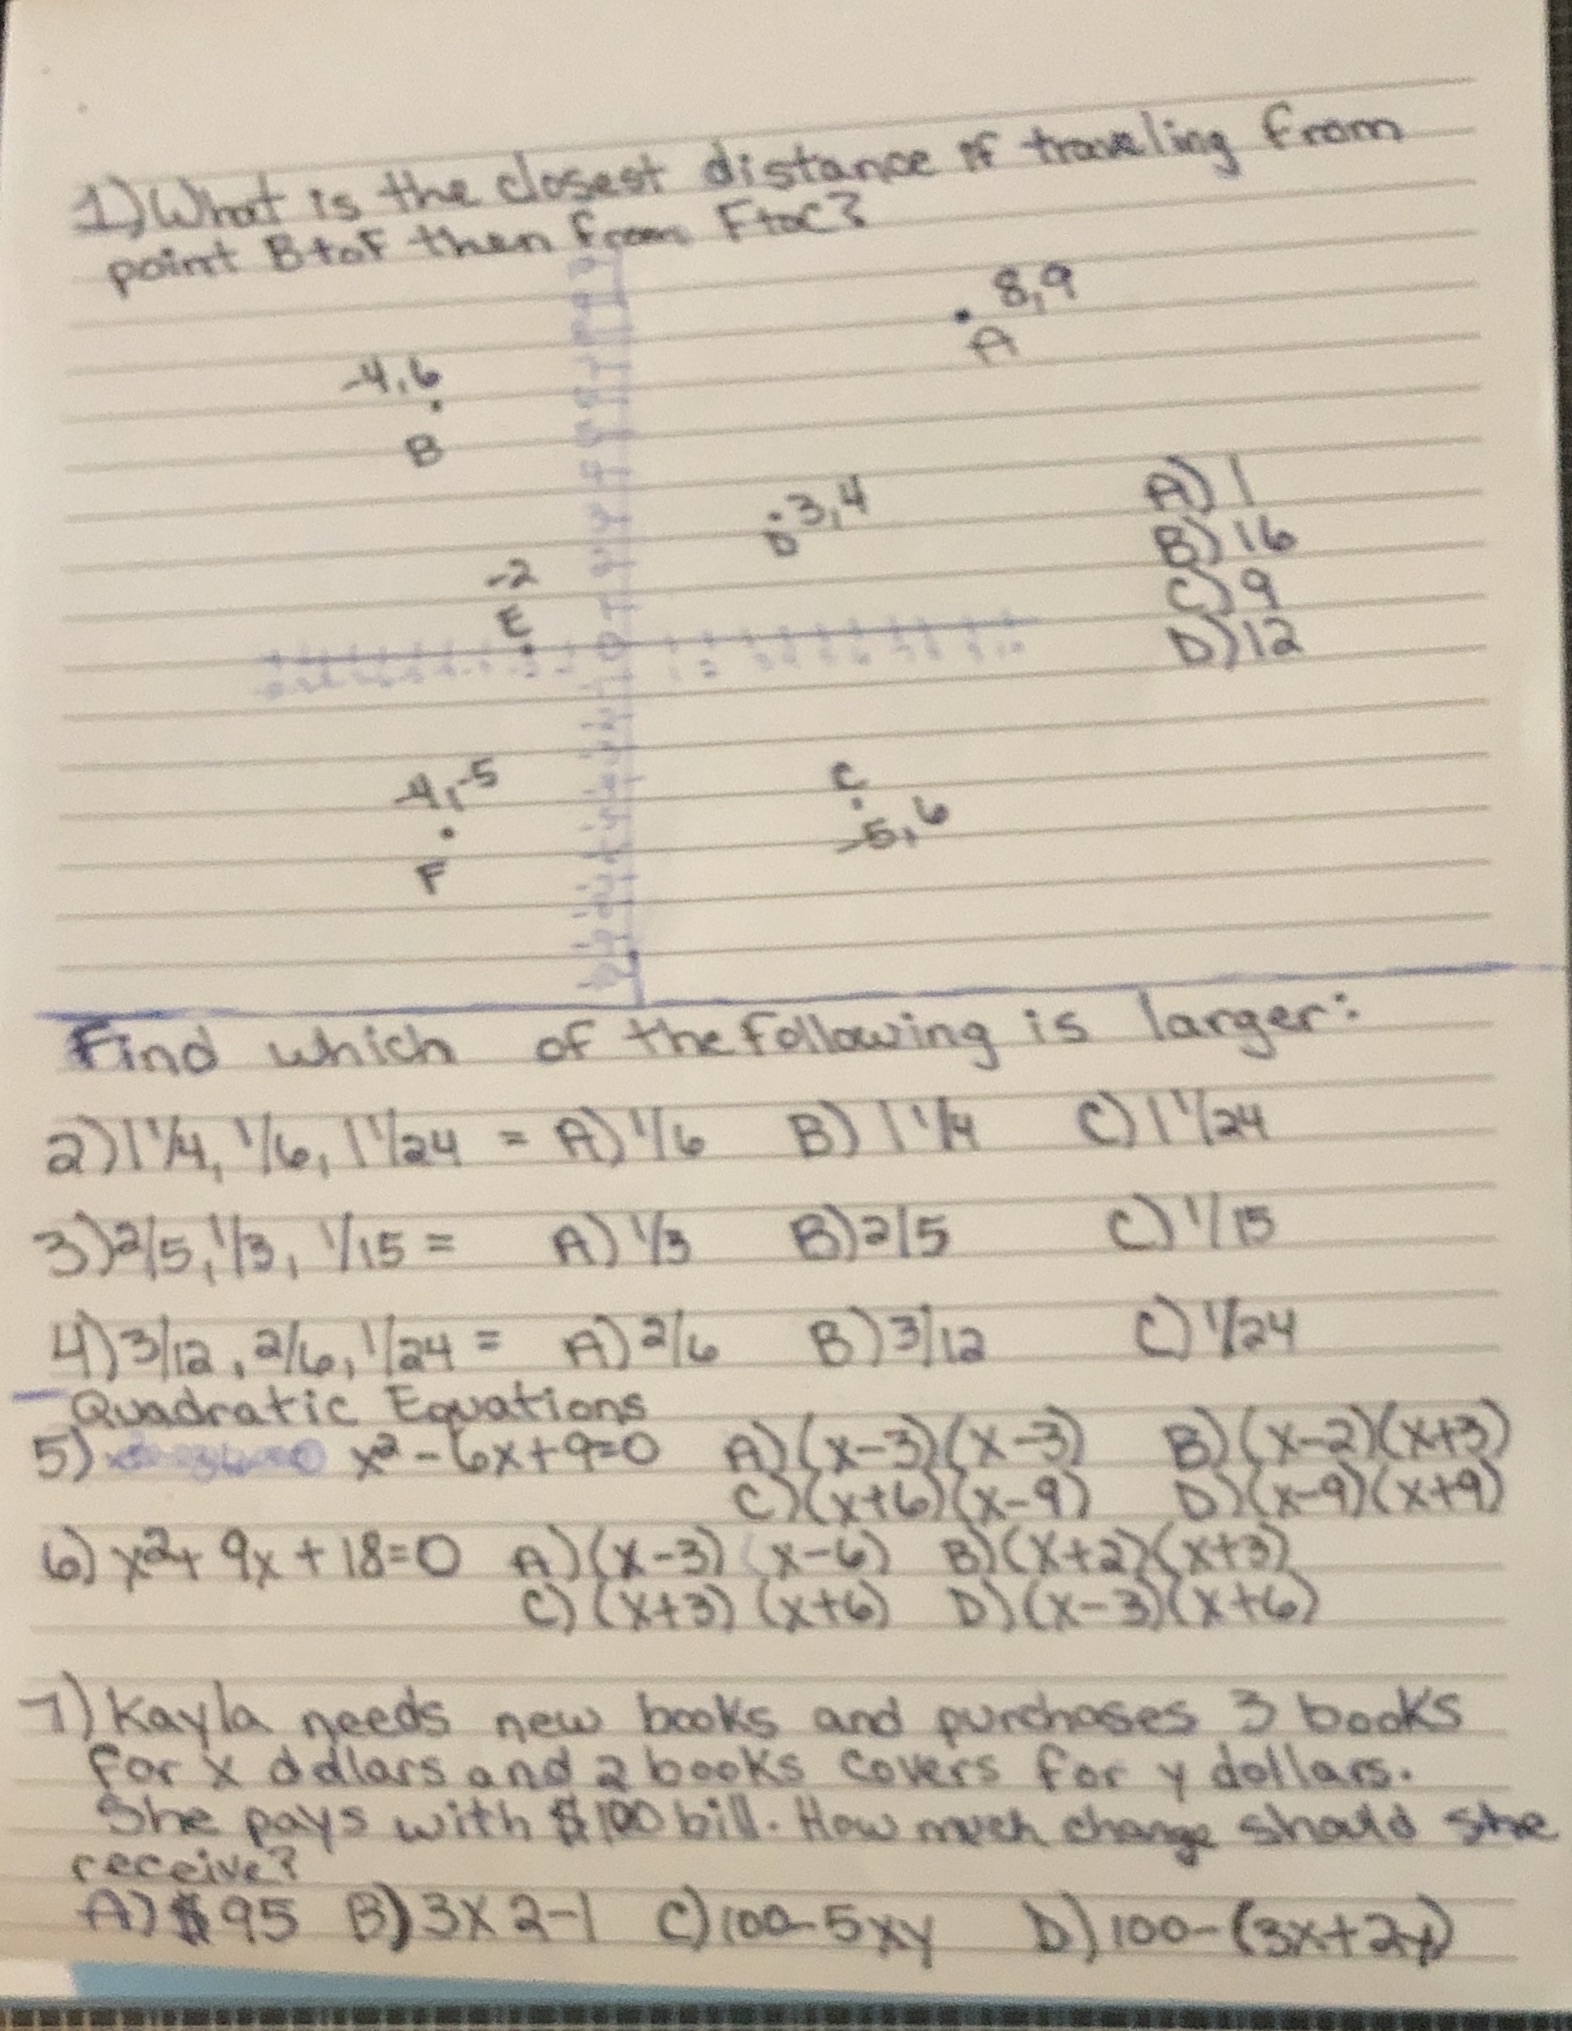 1) What is the closest distance if traveling from
point B to F then from F to C?
8,9
A
-4,6
B
3,4
D
A) 1
B) 16
C) 9
D) 12
-2
E
-4,-5
F
C
-5,6
Find which of the following is larger:
2) 1 1/4, 1/6, 1 1/24 = A) 1/6 B) 1 1/4 C) 1 1/24
3) 2/5, 1/3, 1/15 = A) 1/3 B) 2/5 C) 1/15
4) 3/12, 2/6, 1/24 = A) 2/6 B) 3/12 C) 1/24
Quadratic Equations
5) x²-6x+9=0 A) (x-3)(x-3) B) (x-2)(x+3)
C) (x+6)(x-9) D) (x-9)(x+9)
6) x²+9x+18=0 A) (x-3)(x-6) B) (x+2)(x+3)
C) (x+3)(x+6) D) (x-3)(x+6)
7) Kayla needs new books and purchases 3 books
for x dollars and 2 books covers for y dollars.
She pays with $100 bill. How much change should she
receive?
A) $95 B) 3x2-1 C) 100-5xy D) 100-(3x+2y)